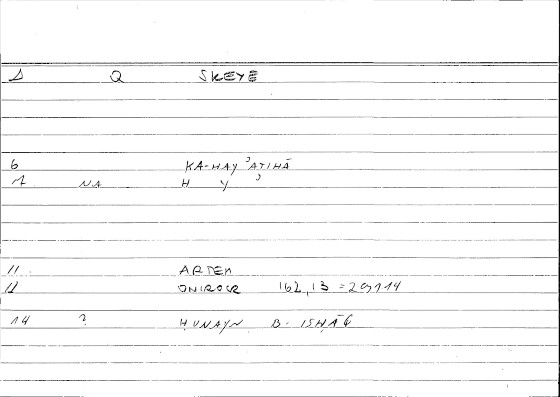 Δ Q SKEYE
6 KA-HAY ʾATIHĀ
1 NA H Y ʾ
11 ARTEM
12 ONIROCR 162,13 = 29114
14 ? ḤUNAYN B- ISḤĀQ